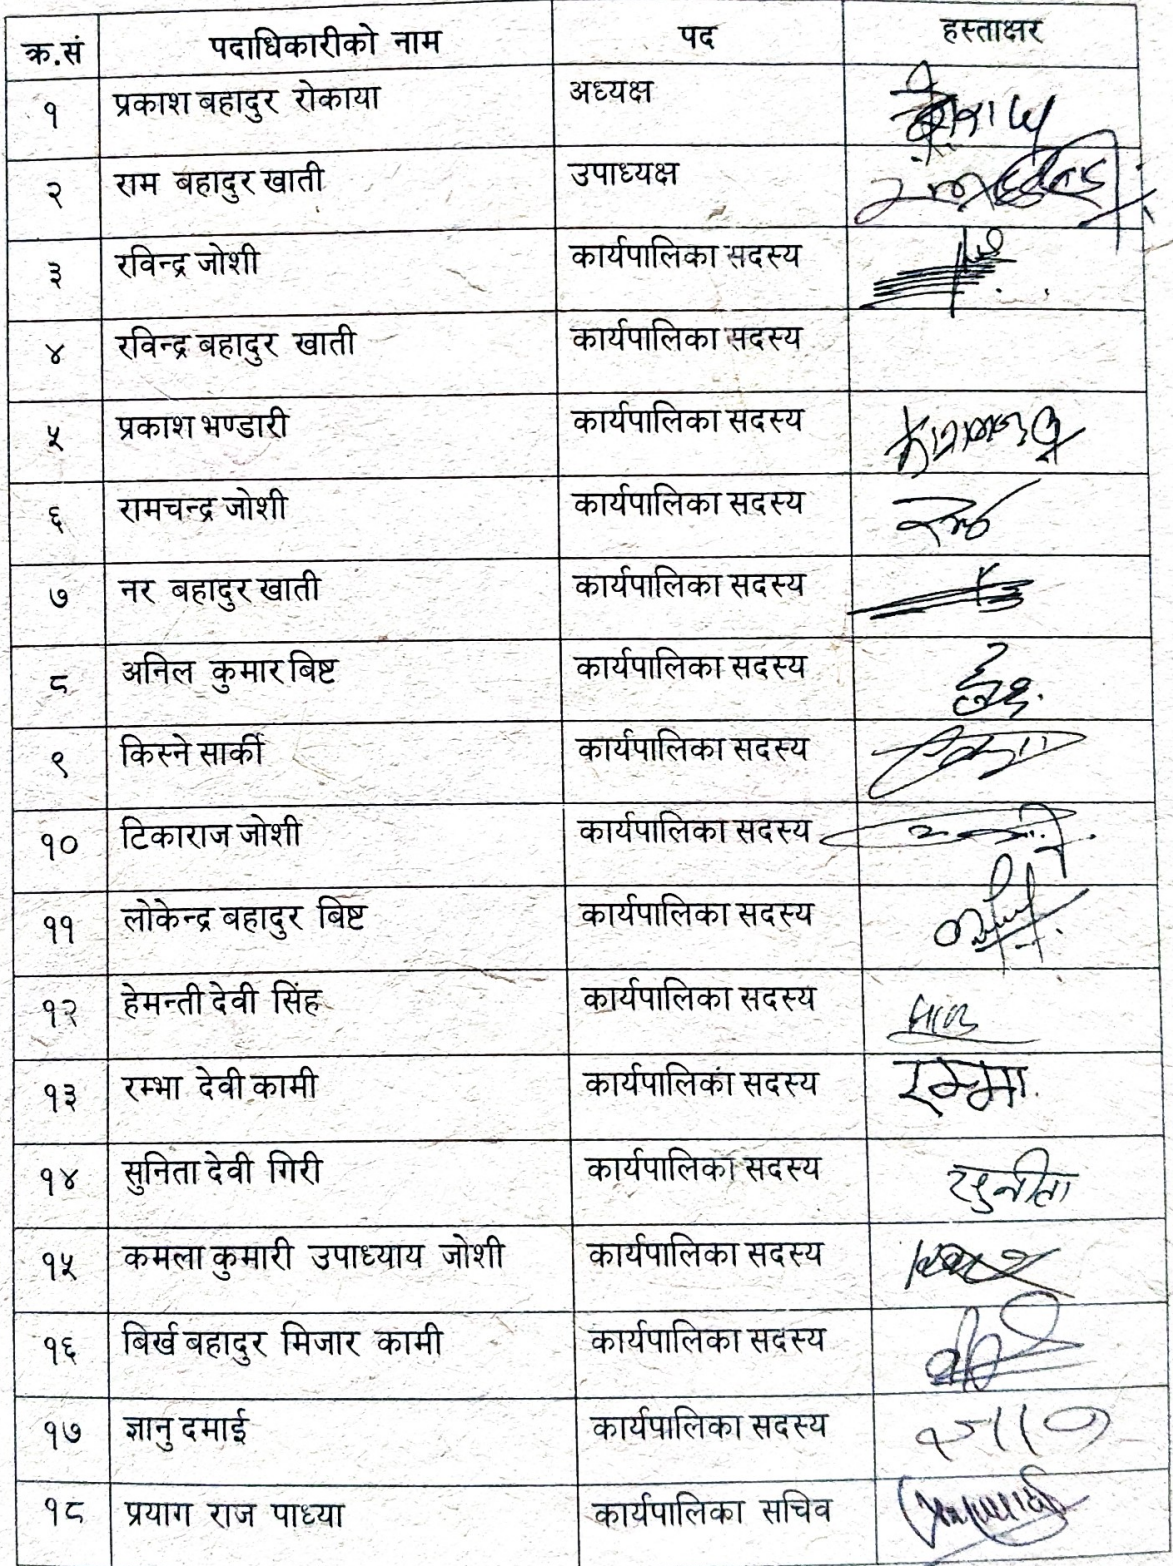 क्र.सं पदाधिकारीको नाम पद हस्ताक्षर
१ प्रकाश बहादुर रोकाया अध्यक्ष
२ राम बहादुर खाती उपाध्यक्ष
३ रविन्द्र जोशी कार्यपालिका सदस्य
४ रविन्द्र बहादुर खाती कार्यपालिका सदस्य
५ प्रकाश भण्डारी कार्यपालिका सदस्य
६ रामचन्द्र जोशी कार्यपालिका सदस्य
७ नर बहादुर खाती कार्यपालिका सदस्य
८ अनिल कुमार बिष्ट कार्यपालिका सदस्य
९ किस्ने सार्की कार्यपालिका सदस्य
१० टिकाराज जोशी कार्यपालिका सदस्य
११ लोकेन्द्र बहादुर बिष्ट कार्यपालिका सदस्य
१२ हेमन्ती देवी सिंह कार्यपालिका सदस्य
१३ रम्भा देवी कामी कार्यपालिका सदस्य रम्भा
१४ सुनिता देवी गिरी कार्यपालिका सदस्य सुनीता
१५ कमला कुमारी उपाध्याय जोशी कार्यपालिका सदस्य
१६ बिर्ख बहादुर मिजार कामी कार्यपालिका सदस्य
१७ ज्ञानु दमाई कार्यपालिका सदस्य
१८ प्रयाग राज पाध्या कार्यपालिका सचिव